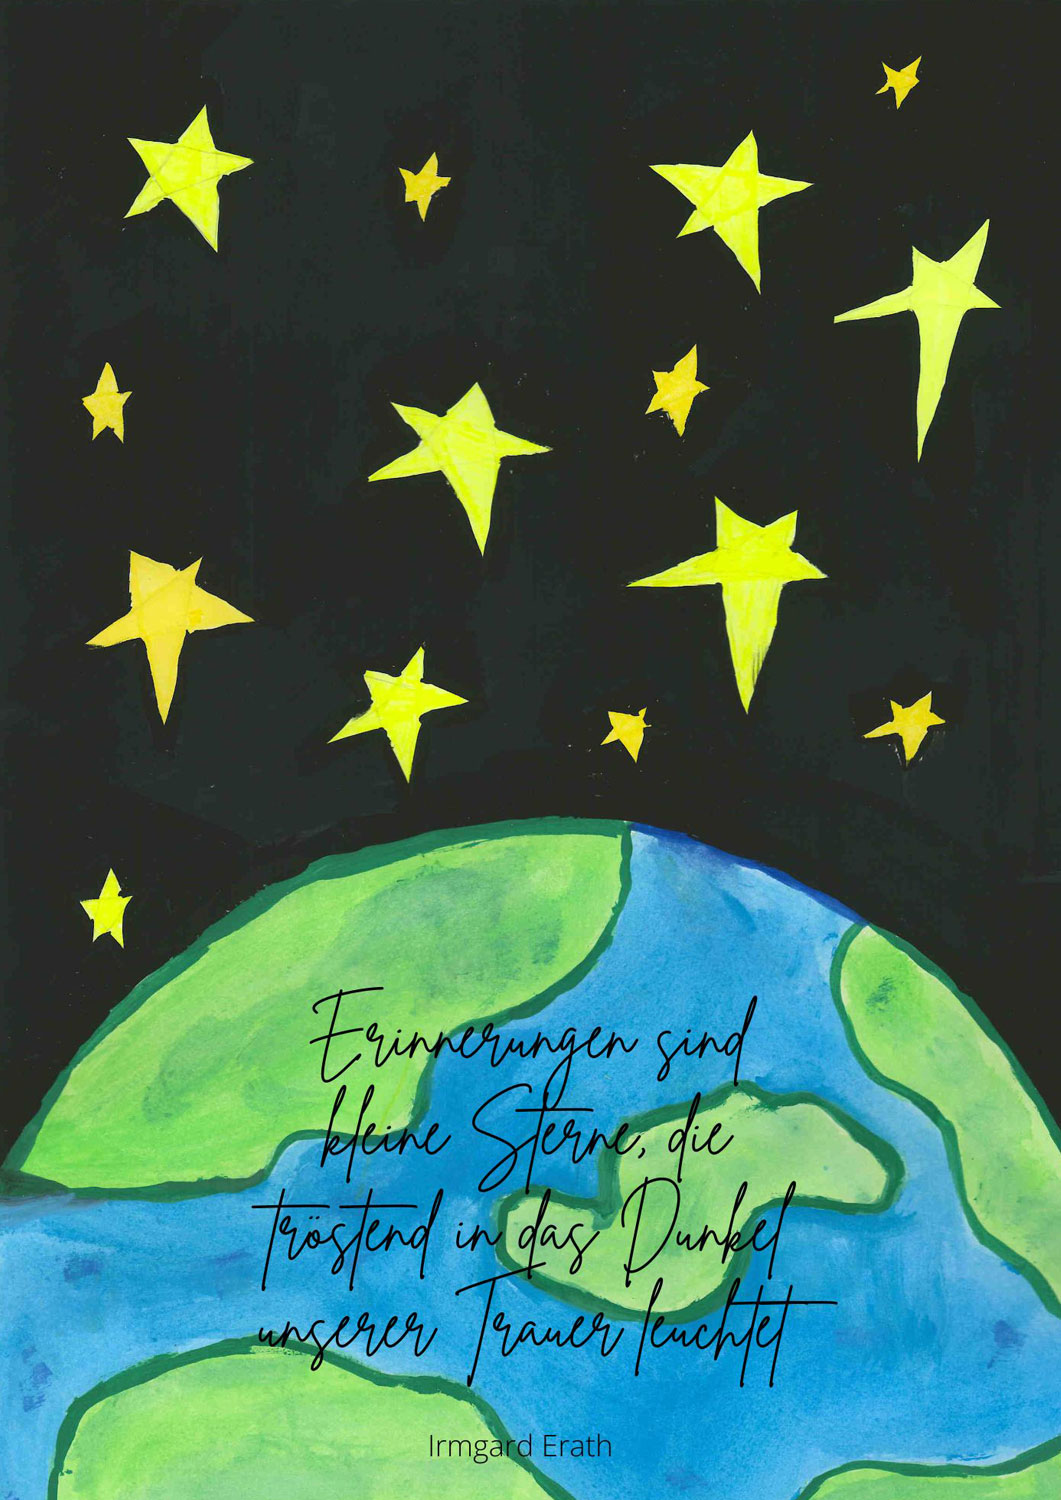 Erinnerungen sind
kleine Sterne, die
tröstend in das Dunkel
unserer Trauer leuchtet
Irmgard Erath